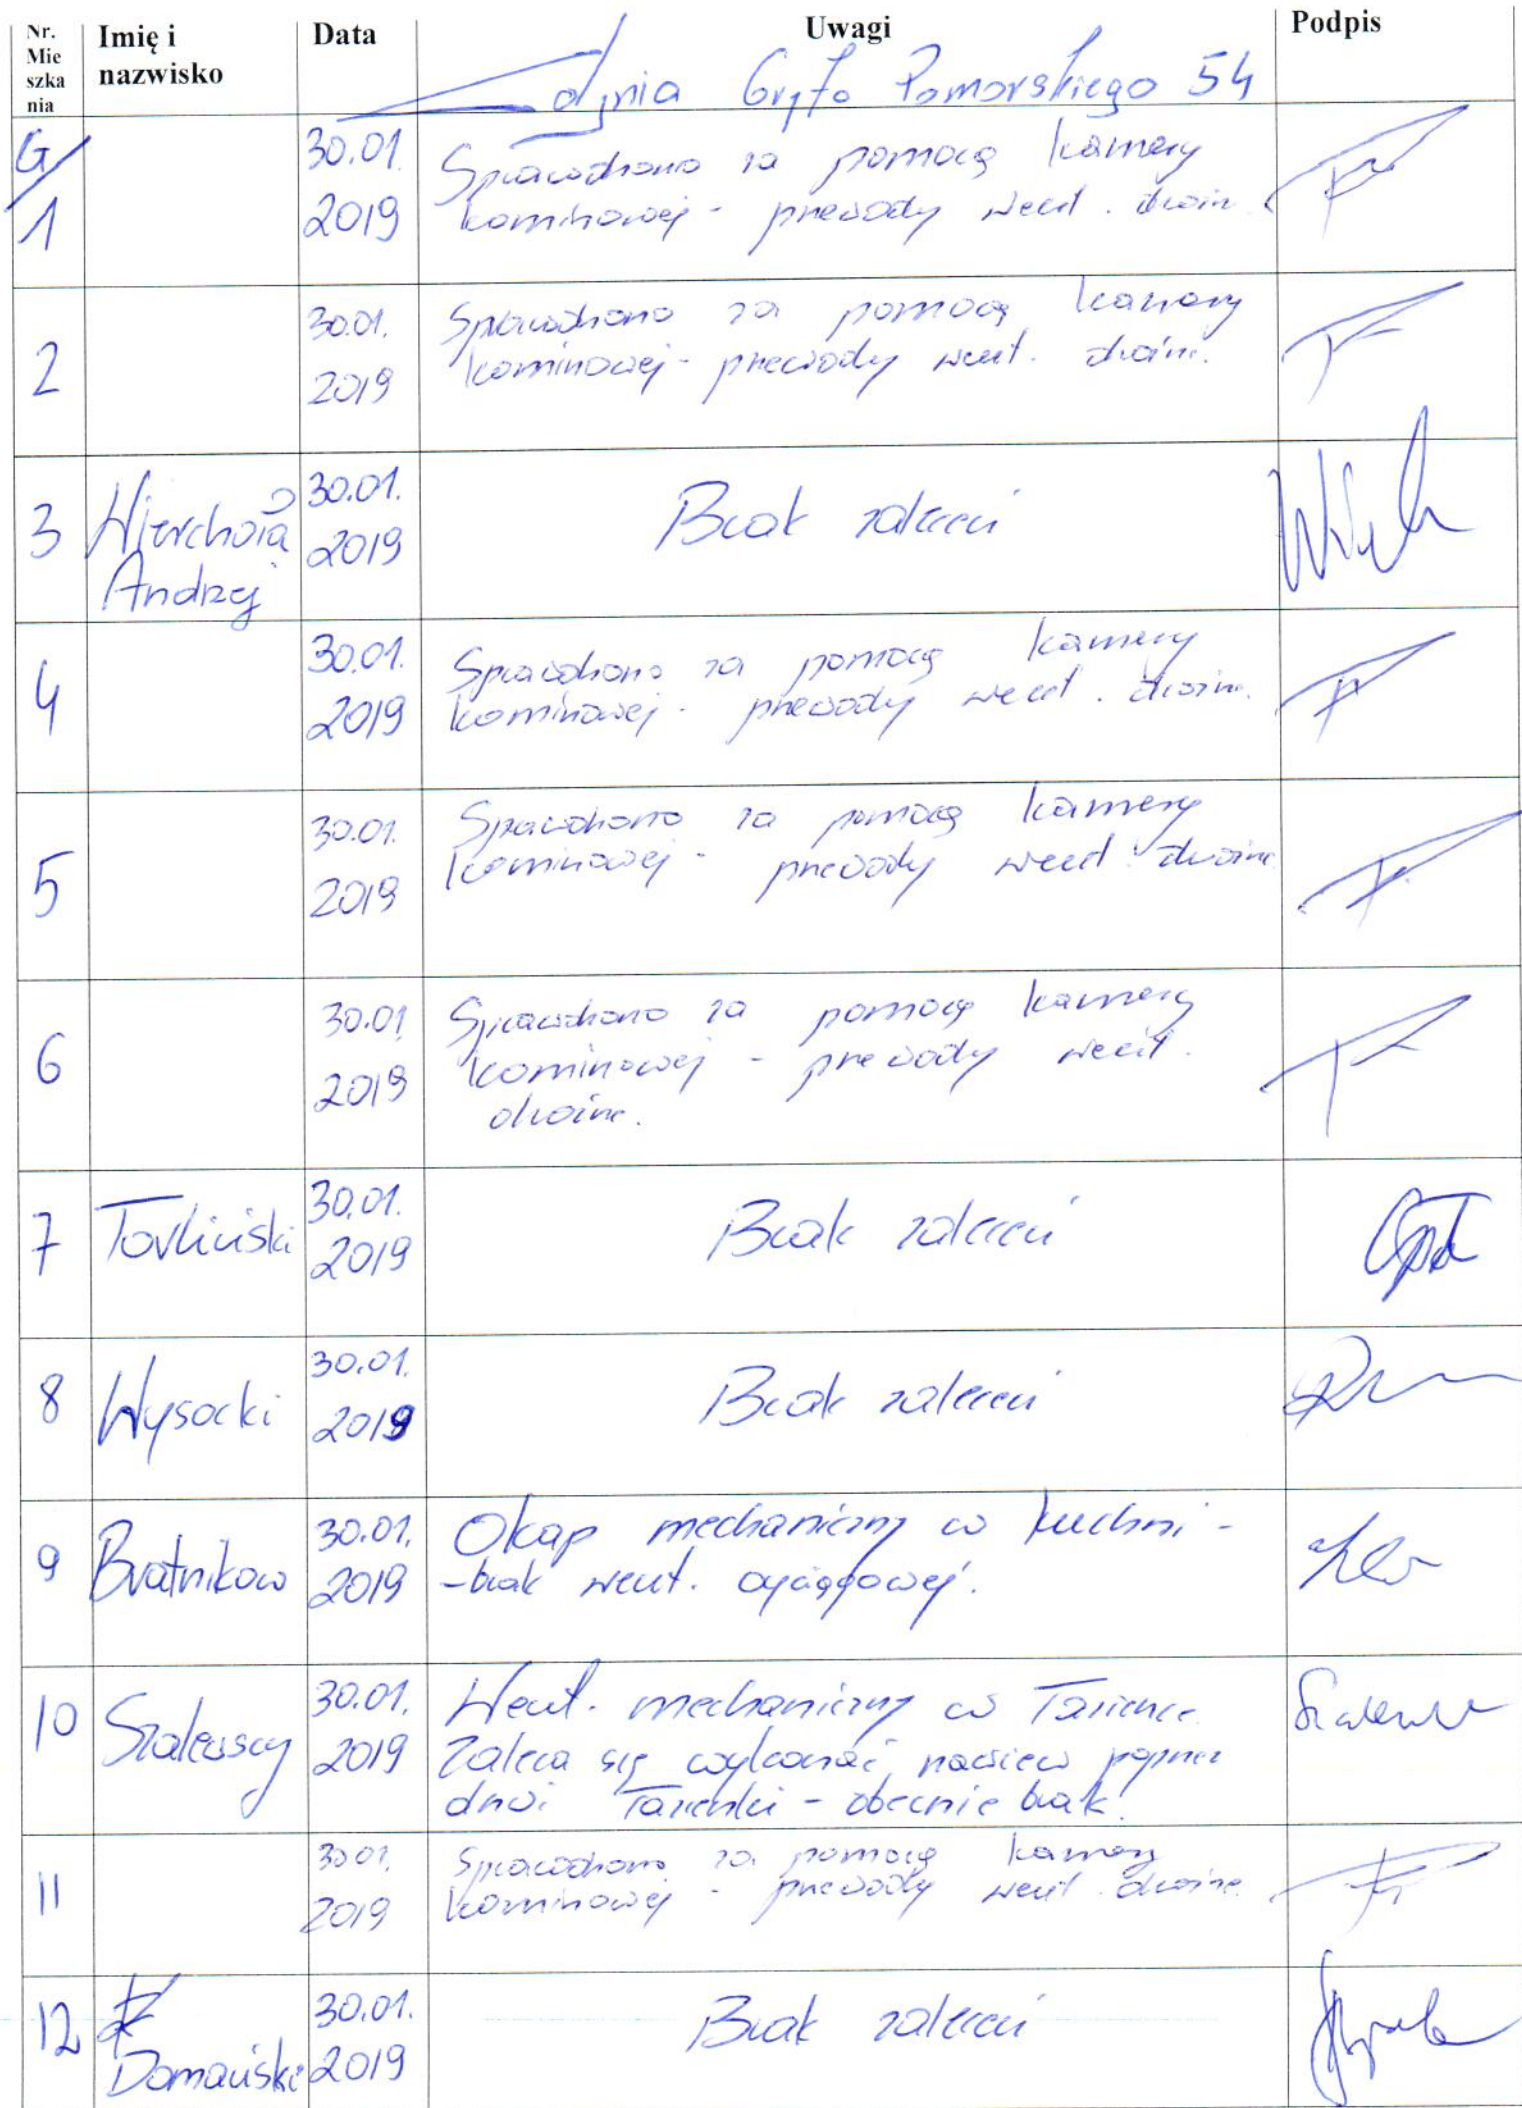 Nr. Mie szka nia | Imię i nazwisko | Data | Uwagi | Podpis
Gdynia Gryfa Pomorskiego 54
G/1 | | 30.01. 2019 | Sprawdzono za pomocą kamery
kominowej - przewody went. drożn.
2 | | 30.01. 2019 | Sprawdzono za pomocą kamery
kominowej - przewody went. drożne.
3 | Wierchoła Andrzej | 30.01. 2019 | Brak zaleceń
4 | | 30.01. 2019 | Sprawdzono za pomocą kamery
kominowej - przewody went. drożne.
5 | | 30.01. 2019 | Sprawdzono za pomocą kamery
kominowej - przewody went. drożne
6 | | 30.01 2019 | Sprawdzono za pomocą kamery
kominowej - przewody went.
drożne.
7 | Torliński | 30.01. 2019 | Brak zaleceń
8 | Wysocki | 30.01. 2019 | Brak zaleceń
9 | Bratnikow | 30.01. 2019 | Okap mechaniczny w kuchni -
- brak went. wyciągowej.
10 | Szalewscy | 30.01. 2019 | Went. mechaniczny w łazience.
Zaleca się wykonać nawiew poprzez
drzwi łazienki - obecnie brak!
11 | | 30.01. 2019 | Sprawdzono za pomocą kamery
kominowej - przewody went. drożne.
12 | Domański | 30.01. 2019 | Brak zaleceń